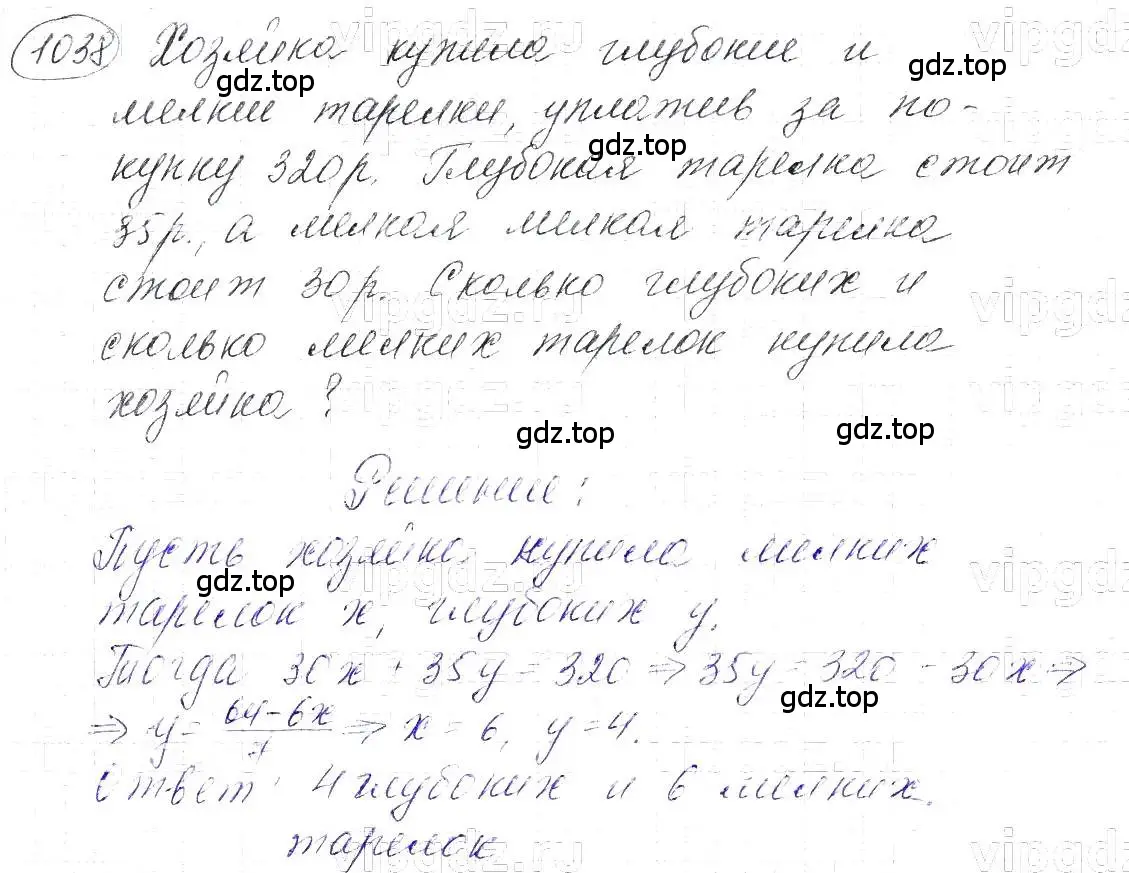 1038 Хозяйка купила глубокие и
gdz.top
мелкие тарелки, уплатив за по-
gdz.top
купку 320 р. Глубокая тарелка стоит
35 р., а мелкая мелкая тарелка
стоит 30 р. Сколько глубоких и
сколько мелких тарелок купила
хозяйка?
gdz.top gdz.top
Решение:
Пусть хозяйка купила мелких
gdz.top
тарелок x, глубоких y.
Тогда 30x + 35y = 320 ⇒ 35y = 320 - 30x ⇒
gdz.top
⇒ y = (64-6x)/7 ⇒ x = 6, y = 4.
Ответ: 4 глубоких и 6 мелких
тарелок
vipgdz.ru